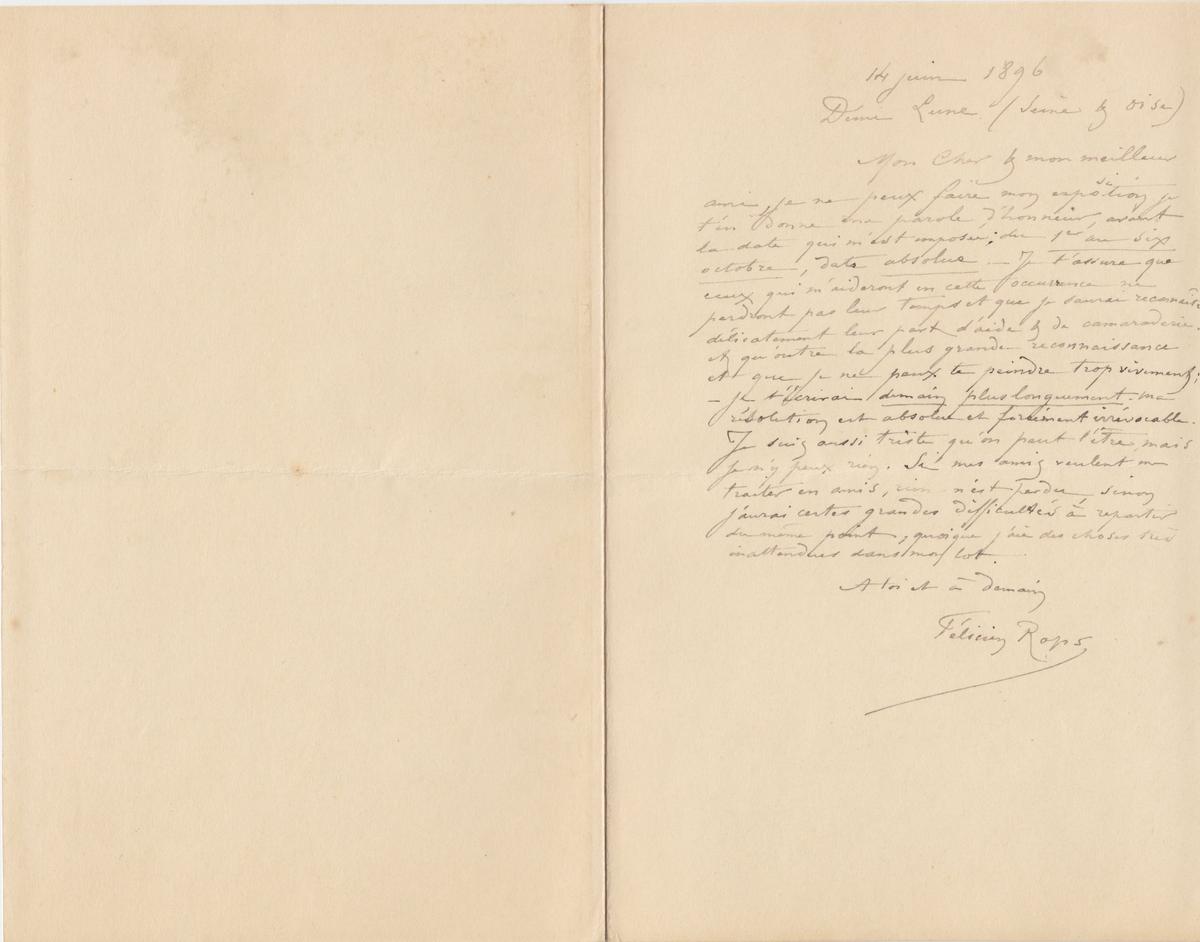 14 juin 1896
Demi Lune (Seine & Oise)
Mon Cher & mon meilleur
ami, je ne peux faire mon exposition je
t'en donne ma parole d'honneur, avant
la date qui m'est imposée; du 1er au six
octobre, date absolue. – Je t'assure que
ceux qui m'aideront en cette occurrence ne
perdront pas leur temps et que je saurai reconnaître
délicatement leur part d'aide & de camaraderie.
et qu'outre la plus grande reconnaissance
et que je ne peux te peindre trop vivement;
– je t'écrirai demain plus longuement. ma
résolution est absolue et forcément irrévocable.
Je suis aussi triste qu'on peut l'être, mais
je n'y peux rien. Si mes amis veulent me
traiter en amis, rien n'est perdu, sinon
j'aurai certes grandes difficultés à repartir
du même point, quoique j'aie des choses très
inattendues dans mon lot.
A toi et à demain
Félicien Rops